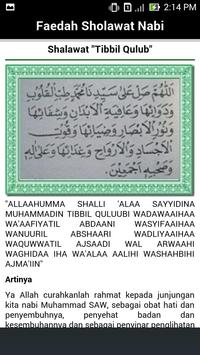 2:14 PM
Faedah Sholawat Nabi
Shalawat "Tibbil Qulub"
اللهم صل على سيدنا محمد طب القلوب
ودوائها وعافية الأبدان وشفائها
ونور الأبصار وضيائها وقوت
الأجساد والأرواح وغذائها وعلى اله
وصحبه أجمعين
"ALLAAHUMMA SHALLI 'ALAA SAYYIDINA
MUHAMMADIN TIBBIL QULUUBI WADAWAAIHAA
WA'AAFIYATIL ABDAANI WASYIFAAIHAA
WANUURIL ABSHAARI WADLIYAAIHAA
WAQUWWATIL AJSAADI WAL ARWAAHI
WAGHIDAA IHA WA'ALAA AALIHI WASHAHBIHI
AJMA'IIN"
Artinya
Ya Allah curahkanlah rahmat kepada junjungan
kita nabi Muhammad SAW, sebagai obat hati dan
penyembuhnya, penyehat badan dan
kesembuhannya dan sebagai penyinar penglihatan